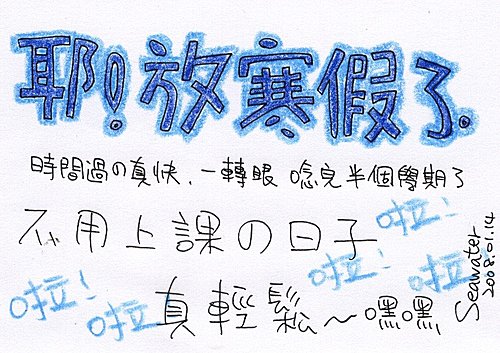 耶!放寒假了.
時間過の真快、一轉眼 唸完半個學期了
不用上課の日子
啦!
啦!
啦!
啦!
啦!
真輕鬆~嘿嘿
Seawater
2008.01.14